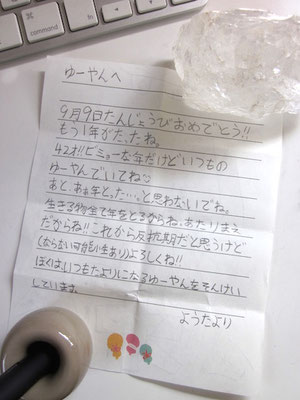 command
ゆーやんへ
9月9日たんじょうびおめでとう!!
もう1年がたったね。
42才!!ビミョーな年だけどいつもの
ゆーやんでいてね
あと、あぁ年とった…。と思わないでね。
生き物全て年をとるからね。あたりまえ
だからね!!これから反抗期だと思うけど
(ならない可能性あり)よろしくね!!
ぼくは、いつもたよりになるゆーやんをそんけい
しています。
ようたより